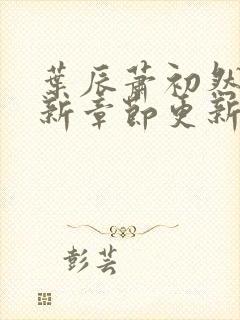 葉辰蕭初然
新章節更新
彭芸